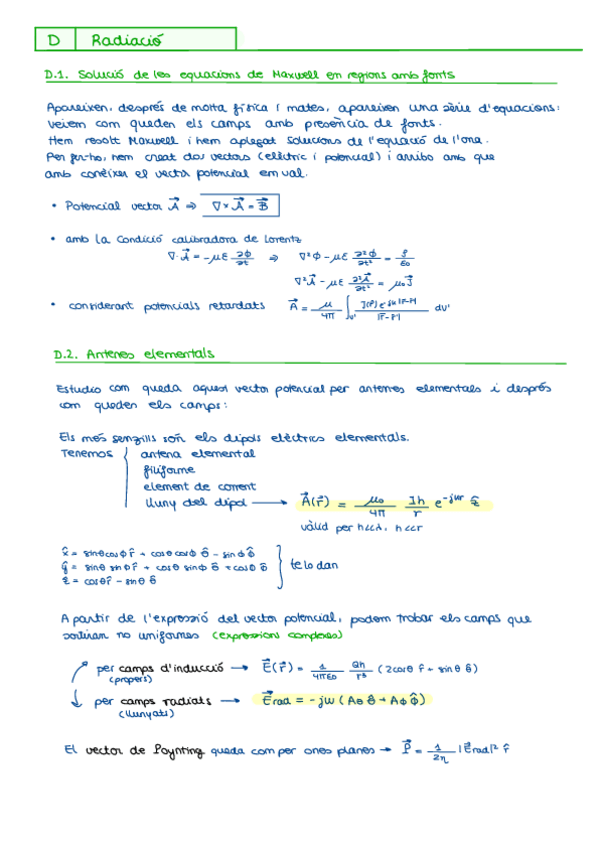 D Radiació
D.1. Solució de les equacions de Maxwell en regions amb fonts
Apareixen, després de molta física i mates, apareixen una sèrie d'equacions:
veiem com queden els camps amb presència de fonts.
Hem resolt Maxwell i hem aplegat solucions de l'equació de l'ona.
Per fer-ho, hem creat dos vectors (elèctric i potencial) i arribo amb que
amb conèixer el vector potencial em val.
• Potencial vector A⃗ ⇒ ∇×A⃗ = B⃗
• amb la condició calibradora de Lorentz
∇·A⃗ = -με ∂Φ/∂t ⇒ ∇²Φ - με ∂²Φ/∂t² = ρ/ε₀
∇²A⃗ - με ∂²A⃗/∂t² = μ₀J⃗
• considerant potencials retardats A⃗ = μ/4π ∫v' dv'
D.2. Antenes elementals
Estudio com queda aquest vector potencial per antenes elementals i després
com queden els camps:
Els més senzills són els dipols elèctrics elementals.
Tenemos { antena elemental
filiforme
element de corrent
lluny del dipol → A⃗(r⃗) = μ₀/4π Ih/r e^-jkr ẑ
vàlid per h<<λ, h<<r
x̂ = sinθcosΦ r̂ + cosθcosΦ θ̂ - sinΦ Φ̂
ŷ = sinθ sinΦ r̂ + cosθ sinΦ θ̂ + cosΦ Φ̂ } te lo dan
ẑ = cosθ r̂ - sinθ θ̂
A partir de l'expressió del vector potencial, podem trobar els camps que
sortiran no uniformes (expressions complexes)
per camps d'inducció → E⃗(r⃗) = 1/4πε₀ Qh/r³ (2cosθ r̂ + sinθ θ̂)
(propers)
per camps radiats → E⃗rad = -jω (Aθ θ̂ + AΦ Φ̂)
(llunyans)
El vector de Poynting queda com per ones planes → P⃗ = 1/2η |E⃗rad|² r̂